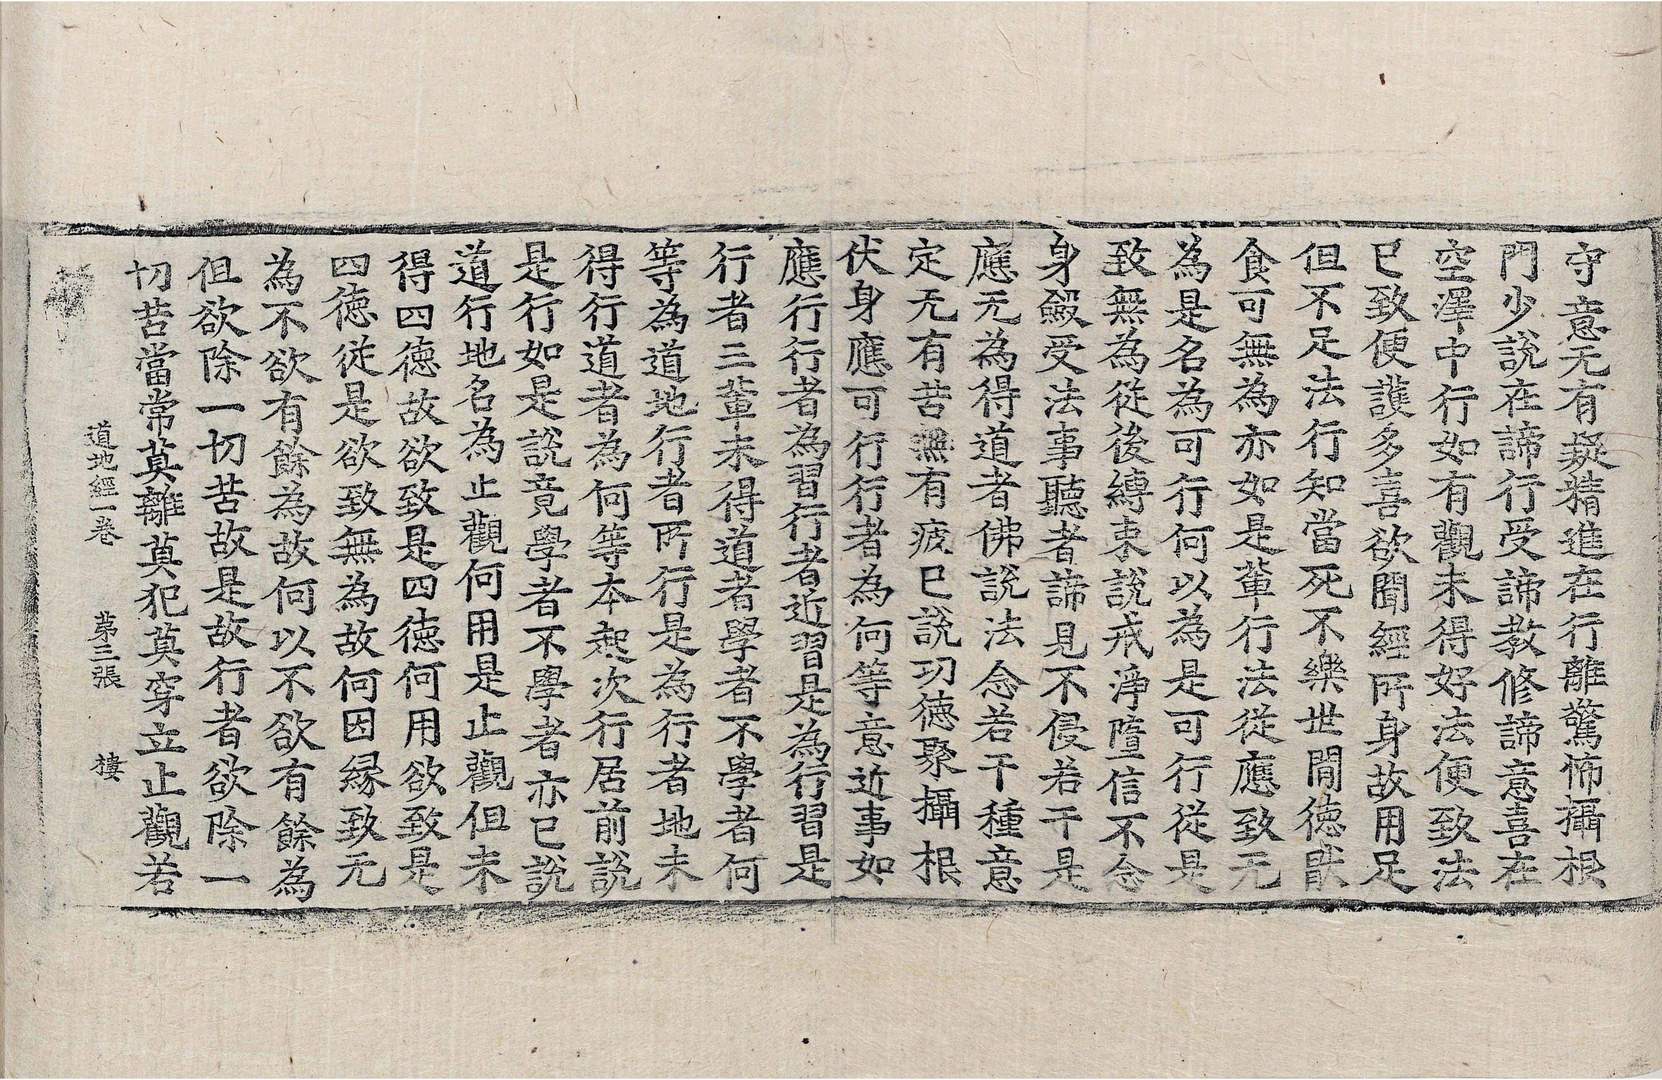 守意无有疑精進在行離驚怖攝根
門少說在諦行受諦教修諦意喜在
空澤中行如有觀未得好法便致法
已致便護多喜欲聞經所身故用足
但不足法行知當死不樂世間德猒
食可無為亦如是輩行法從應致无
為是名為可行何以為是可行從是
致無為從後縛束說戒淨墮信不念
身綴受法事聽者諦見不侵若干是
應无為得道者佛說法念若干種意
定无有苦無有疲已說功德聚攝根
伏身應可行行者為何等意近事如
應行行者為習行者近習是為行習是
行者三輩未得道者學者不學者何
等為道地行者所行是為行者地未
得行道者為何等本起次行居前說
是行如是說竟學者不學者亦已說
道行地名為止觀何用是止觀但未
得四德故欲致是四德何用欲致是
四德從是欲致無為故何因緣致无
為不欲有餘為故何以不欲有餘為
但欲除一切苦故是故行者欲除一
切苦當常莫離莫犯莫穿立止觀若
道地經一卷 第三張 樓